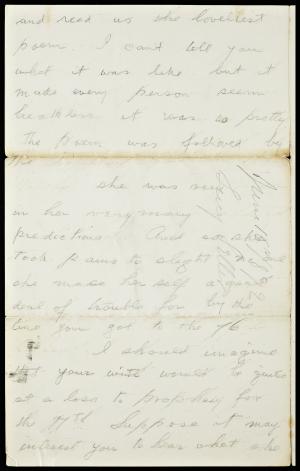 and read us the loveliest
poem. I can't tell you
what it was like but it
made every person seem
breathless it was so pretty
The poem was followed by
the
she was very
in her very many
predictions. And so she
took pains to slight
she made her self a great
deal of trouble for by the
time you got to the 76
I should imagine
that your wits would be quite
at a loss to prophesy for
the 77th Suppose it may
interest you to hear what she
June 18